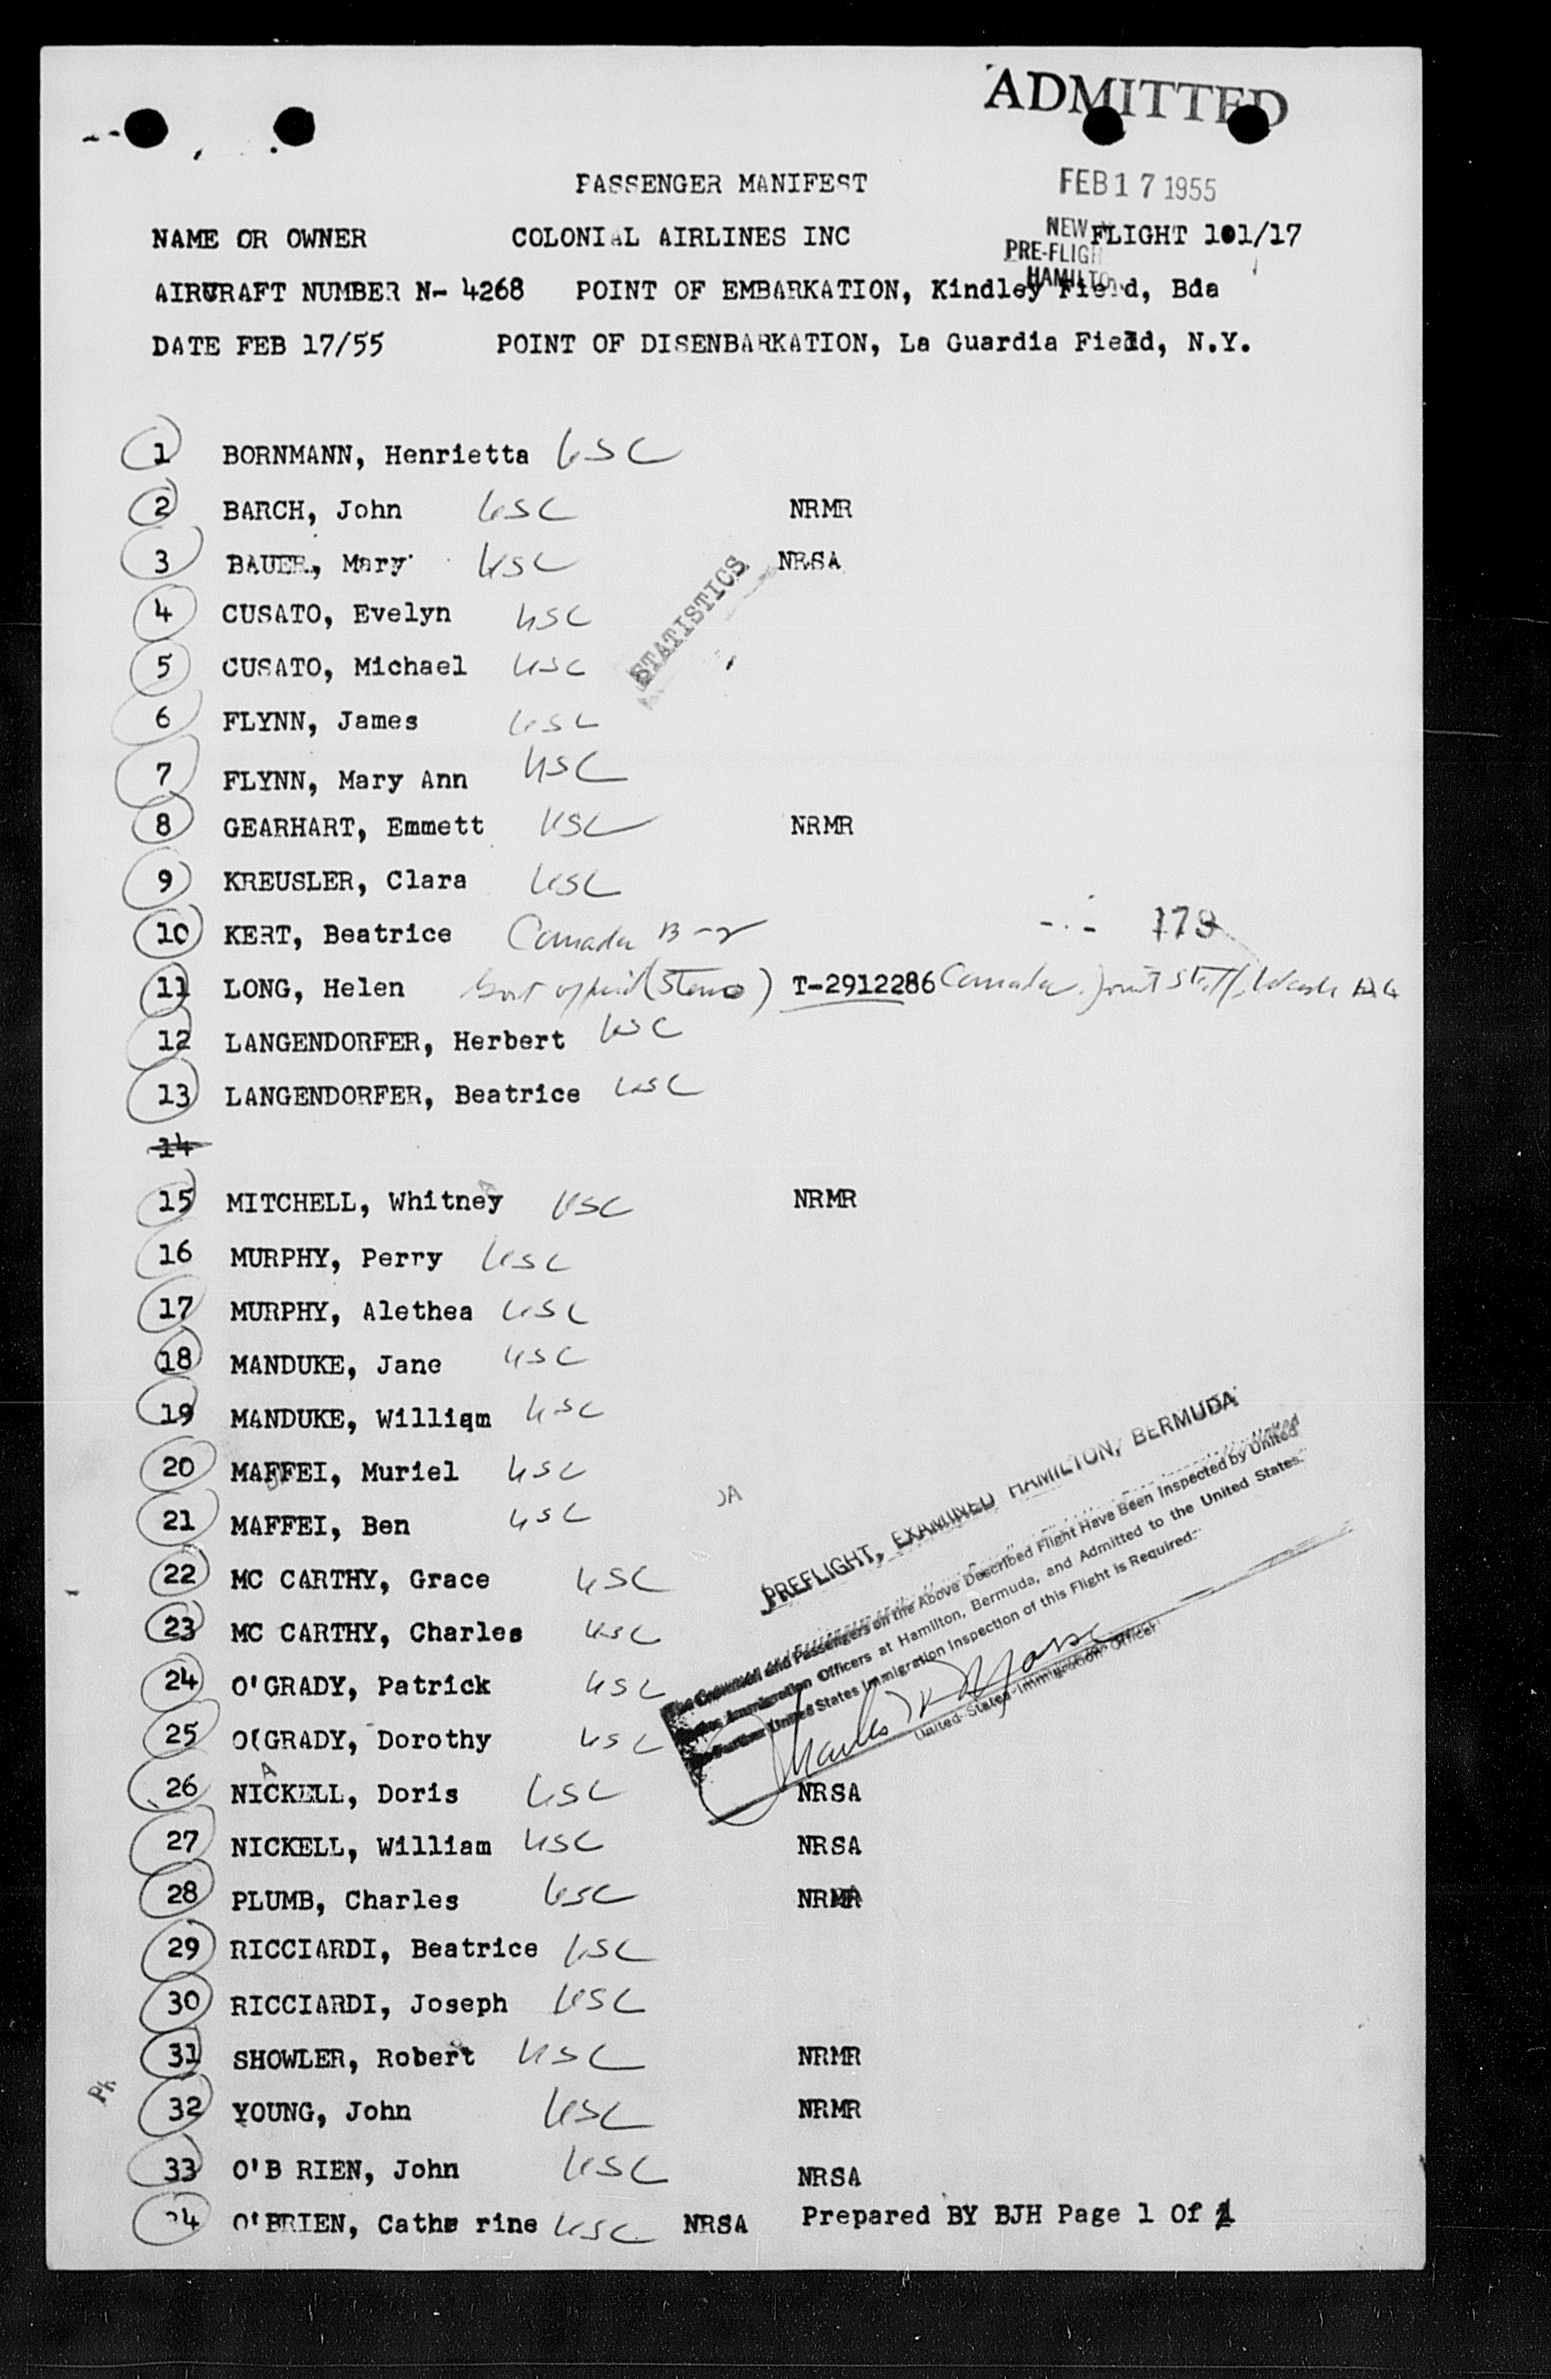 ADMITTED
PASSENGER MANIFEST
FEB 17 1955
NAME OR OWNER COLONIAL AIRLINES INC NEW FLIGHT 101/17
PRE-FLIGH
HAMILTO
AIRCRAFT NUMBER N- 4268 POINT OF EMBARKATION, Kindley Field, Bda
DATE FEB 17/55 POINT OF DISENBARKATION, La Guardia Field, N.Y.
1 BORNMANN, Henrietta USC
2 BARCH, John USC NRMR
3 BAUER, Mary USC NRSA
STATISTICS
4 CUSATO, Evelyn USC
5 CUSATO, Michael USC
6 FLYNN, James USC
7 FLYNN, Mary Ann USC
8 GEARHART, Emmett USC NRMR
9 KREUSLER, Clara USC
10 KERT, Beatrice Canada B-2 179
11 LONG, Helen Govt official (Steno) T-2912286 Canada Joint Staff, Wash
12 LANGENDORFER, Herbert USC
13 LANGENDORFER, Beatrice USC
14
15 MITCHELL, Whitney USC NRMR
16 MURPHY, Perry USC
17 MURPHY, Alethea USC
18 MANDUKE, Jane USC
19 MANDUKE, Williqm USC
20 MAFFEI, Muriel USC
21 MAFFEI, Ben USC
22 MC CARTHY, Grace USC
23 MC CARTHY, Charles USC
24 O'GRADY, Patrick USC
25 O(GRADY, Dorothy USC
PREFLIGHT, EXAMINED HAMILTON, BERMUDA
The Crewmen and Passengers on the Above Described Flight Have Been Inspected by United
States Immigration Officers at Hamilton, Bermuda, and Admitted to the United States.
No Further United States Immigration Inspection of this Flight is Required.
Charles
United States Immigration Officer
26 NICKELL, Doris USC NRSA
27 NICKELL, William USC NRSA
28 PLUMB, Charles USC NRMR
29 RICCIARDI, Beatrice USC
30 RICCIARDI, Joseph USC
31 SHOWLER, Robert USC NRMR
32 YOUNG, John USC NRMR
33 O'B RIEN, John USC NRSA
34 O'BRIEN, Cathe rine USC NRSA Prepared BY BJH Page 1 Of 1